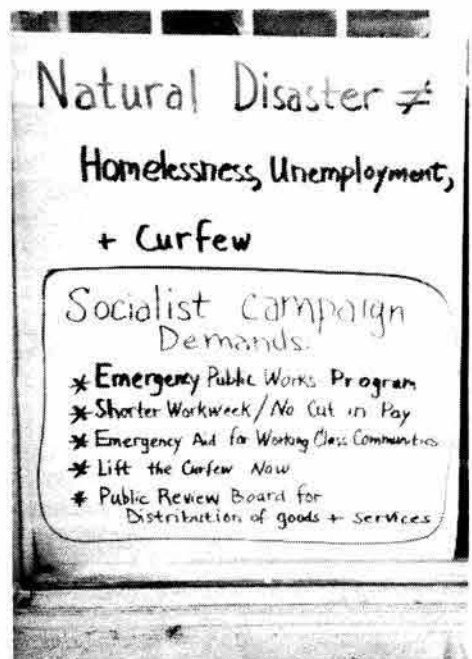 Natural Disaster ≠
Homelessness, Unemployment,
+ Curfew
Socialist Campaign
Demands
* Emergency Public Works Program
* Shorter Workweek/No Cut in Pay
* Emergency Aid for Working Class Communities
* Lift the Curfew Now
* Public Review Board for
Distribution of goods + services